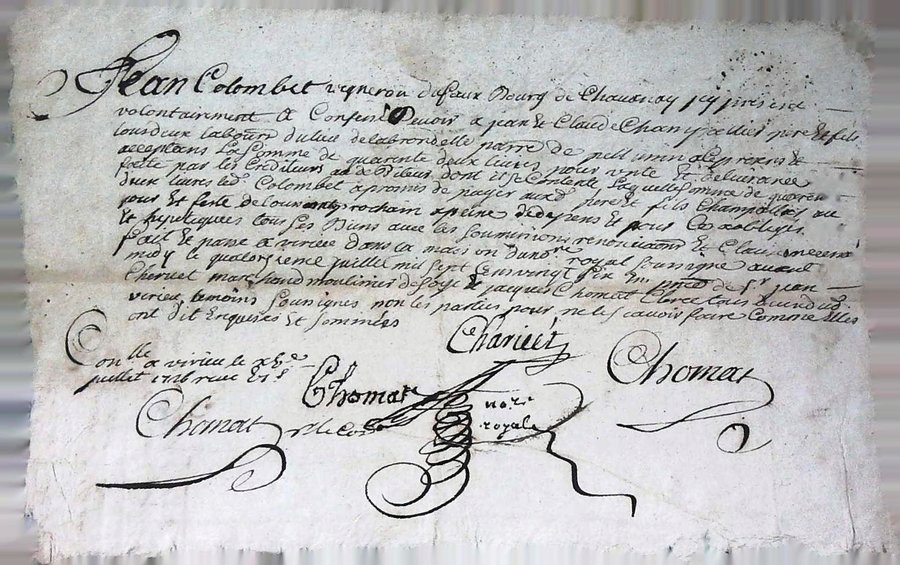 Jean Colombet vigneron du faux Bourg de Chavanay icy present
volontairement a Confessé Devoir a jean & Claude Champallier pere & fils
tous deux laboureurs du lieu de la brondelle parre de
acceptans La Somme de quarente deux livres pour vente & delivrance
faitte par les Crediteurs au debiteur dont il se Contente Laquelle Somme de quarente
deux livres led. Colombet a promis de payer auxd. pere et fils Champallier au
jour et feste de prochain a peine de depens Et pour Ce a obligés
Et hypotequées tous Ses Biens avec les Soumissions renonciaons Et Clauses necess
fait & passé a virieu dans la maison du no.re royal Soussigné avant
midy le quatorzieme juillet mil Sept Cent vingt Six En pnce de Sr jean
Cheruet marchand moulinier de Soye & jacques Chomat Clerc tous deux dud.
virieu temoins Soussignes non les parties pour ne le Scavoir faire Comme Elles
ont dit Enquises Et Sommées
Chomat
Con.lle
a virieu le
juillet 1726 receu
Chomat
Chomat
no.re
royal